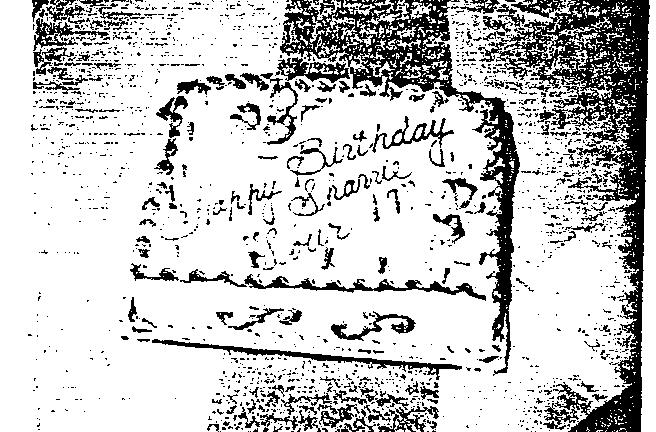 Happy Birthday
Sharrie
"Sour 17"